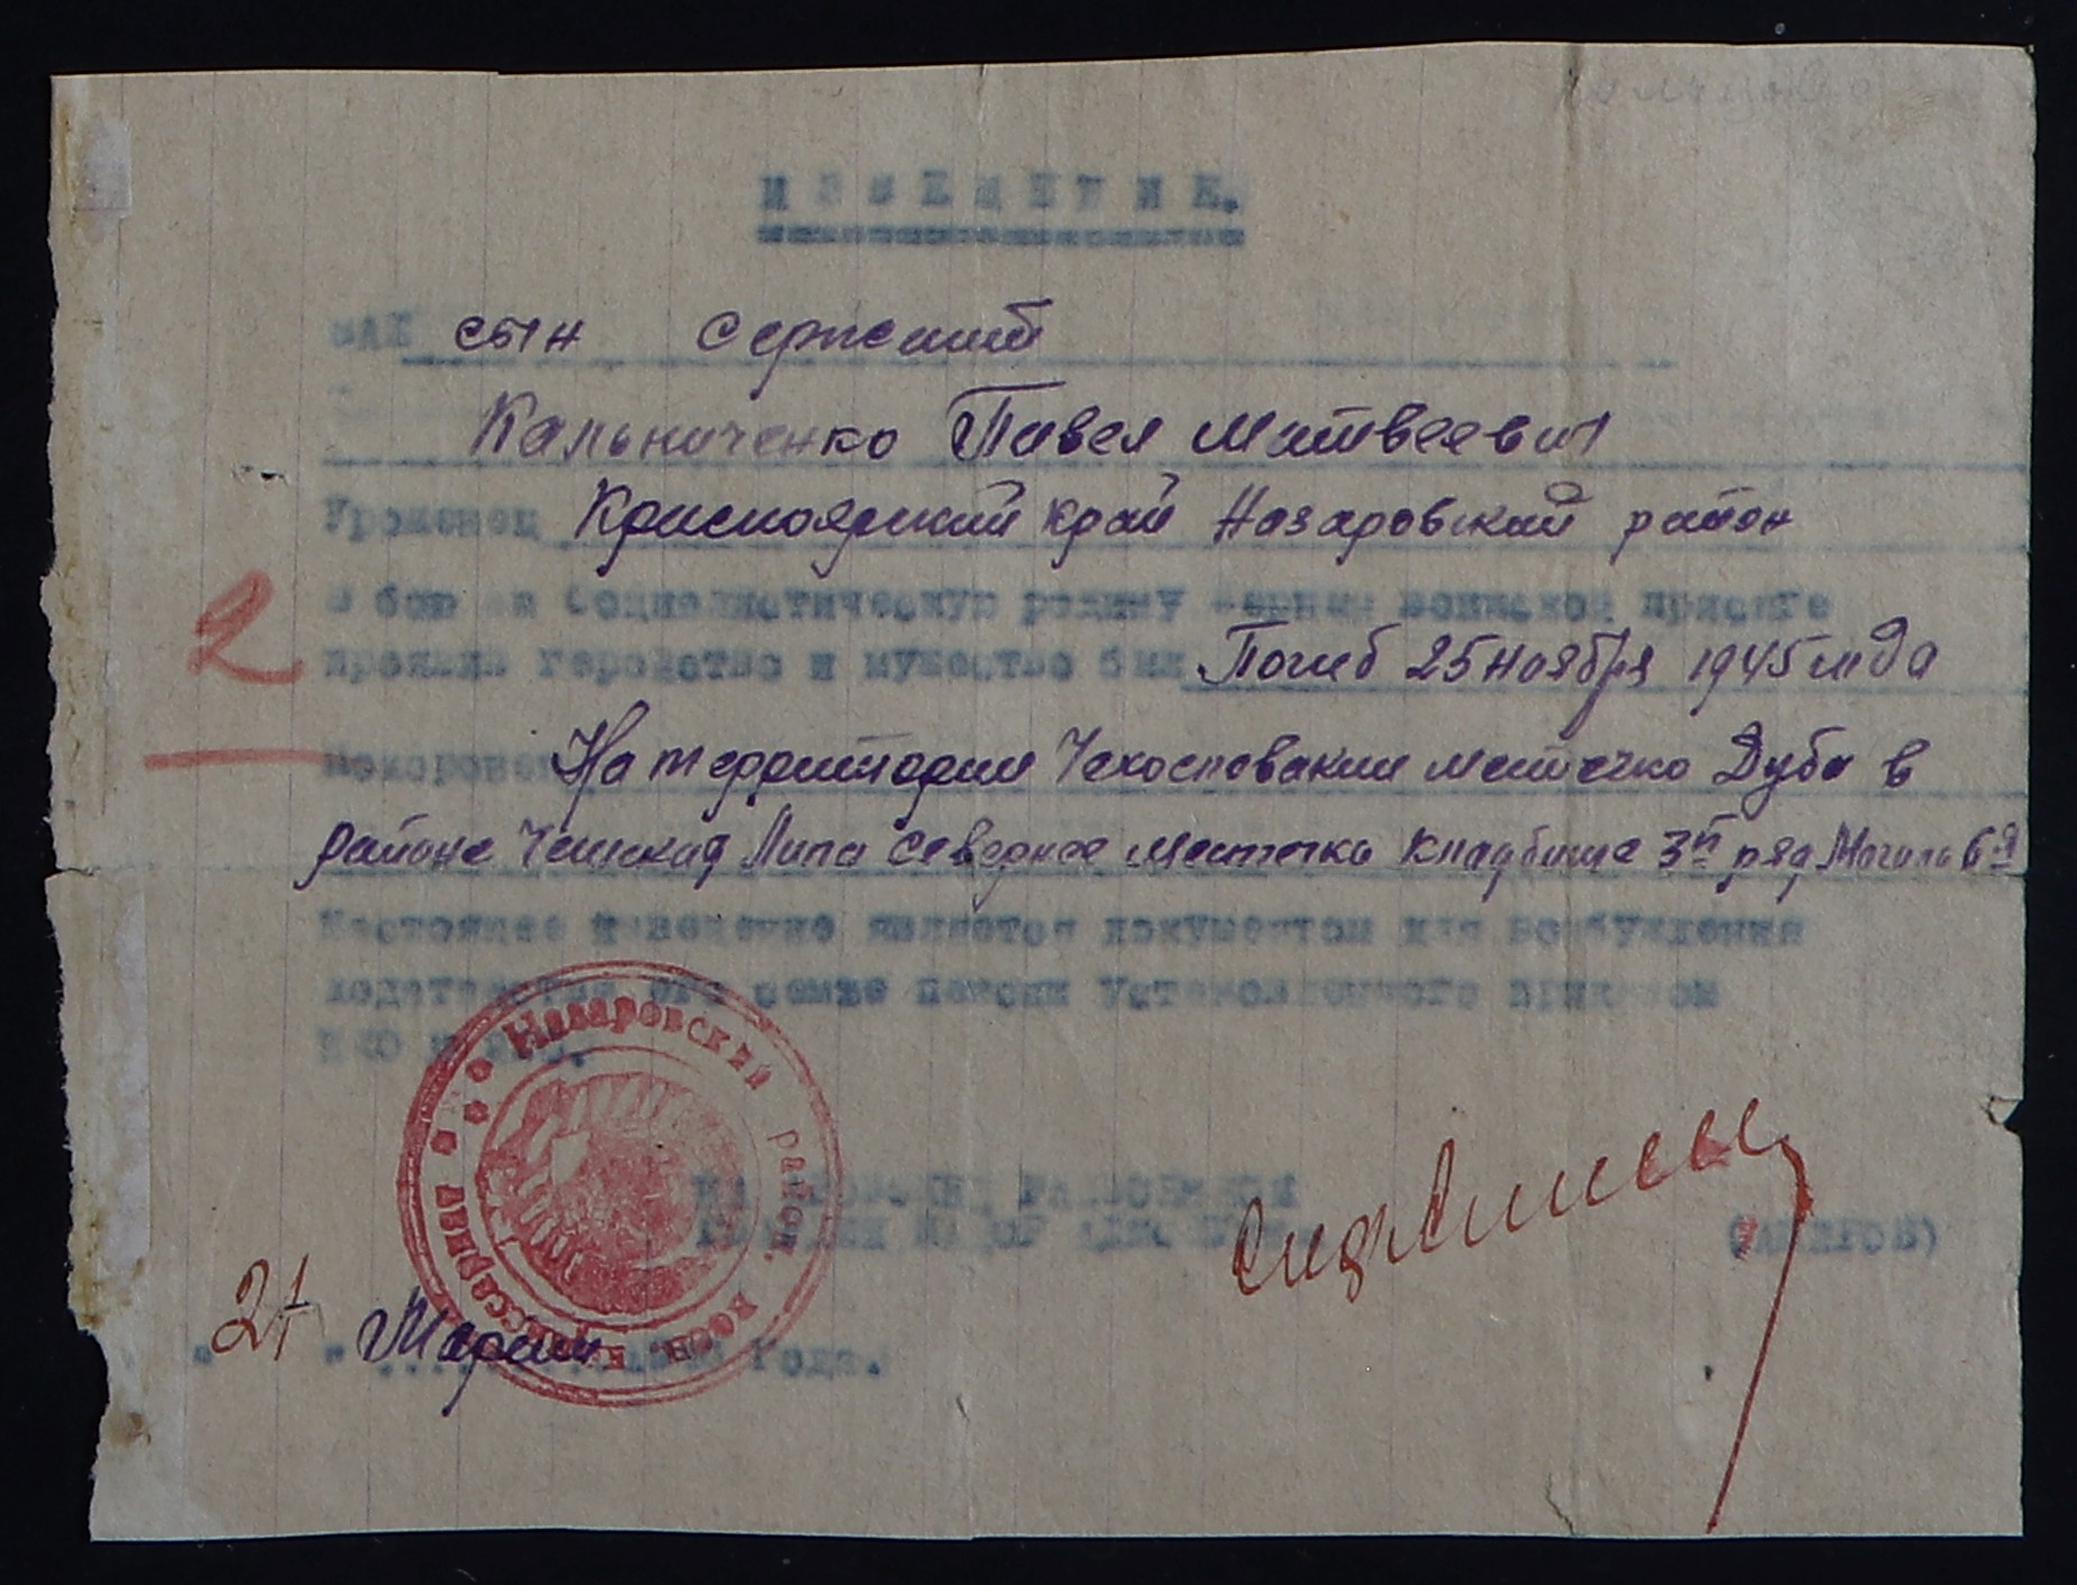 ИЗВЕЩЕНИЕ.
ВАШ сын сержант
Кальниченко Павел Матвеевич
Уроженец Красноярский край Назаровский район
В бою за Социалистическую родину верный воинской присяге
проявив геройство и мужество был Погиб 25 ноября 1945 года
похоронен На территории Чехословакии местечко Дуба в
районе Чешская Липа Севернее местечка Кладбище 3й ряд Могила 6я
Настоящее извещение является документом для возбуждения
ходатайства его семье пенсии Установленного приказом
Назаровский район. воен. комиссариат
НАЗАРОВСКИЙ РАЙВОЕНКОМ
21 " Марта года.